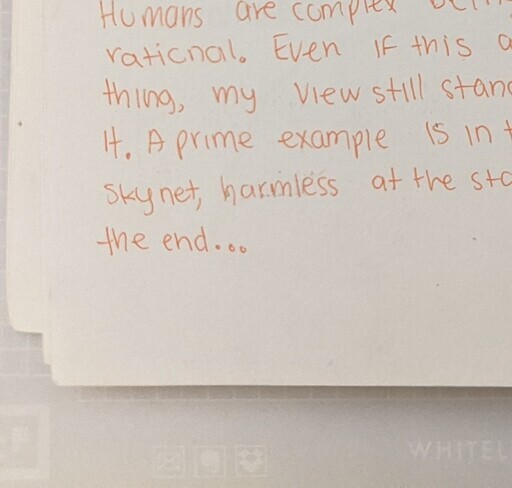 Humans are complex
raticnal. Even if this a
thing, my view still stan
it. A prime example is in t
Skynet, harmless at the sta
the end...
WHITEL